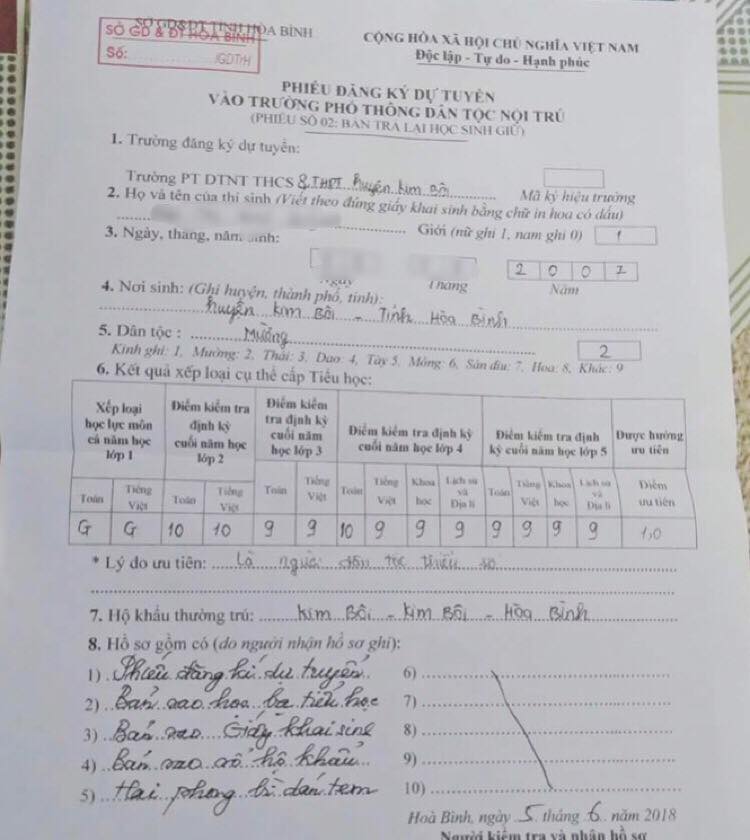 SỞ GD&ĐT TỈNH HÒA BÌNH
SỞ GD & ĐT HÒA BÌNH
Số: ............/GDTrH
CỘNG HÒA XÃ HỘI CHỦ NGHĨA VIỆT NAM
Độc lập - Tự do - Hạnh phúc
PHIẾU ĐĂNG KÝ DỰ TUYỂN
VÀO TRƯỜNG PHỔ THÔNG DÂN TỘC NỘI TRÚ
(PHIẾU SỐ 02: BẢN TRẢ LẠI HỌC SINH GIỮ)
1. Trường đăng ký dự tuyển:
Trường PT DTNT THCS & THPT huyện Kim Bôi Mã ký hiệu trường
2. Họ và tên của thí sinh (Viết theo đúng giấy khai sinh bằng chữ in hoa có dấu)
Giới (nữ ghi 1, nam ghi 0) 1
3. Ngày, tháng, năm sinh:
2 0 0 7
Ngày Tháng Năm
4. Nơi sinh: (Ghi huyện, thành phố, tỉnh):
huyện Kim Bôi - Tỉnh Hòa Bình
5. Dân tộc : Mường 2
Kinh ghi: 1, Mường: 2, Thái: 3, Dao: 4, Tày 5, Mông: 6, Sán dìu: 7, Hoa: 8, Khác: 9
6. Kết quả xếp loại cụ thể cấp Tiểu học:
Xếp loại học lực môn cả năm học lớp 1
Điểm kiểm tra định kỳ cuối năm học lớp 2
Điểm kiểm tra định kỳ cuối năm học lớp 3
Điểm kiểm tra định kỳ cuối năm học lớp 4
Điểm kiểm tra định kỳ cuối năm học lớp 5
Được hưởng ưu tiên
Toán Tiếng Việt Toán Tiếng Việt Toán Tiếng Việt Toán Tiếng Việt Khoa học Lịch sử và Địa lí Toán Tiếng Việt Khoa học Lịch sử và Địa lí Điểm ưu tiên
G G 10 10 9 9 10 9 9 9 9 9 9 9 1,0
* Lý do ưu tiên: Là người dân tộc thiểu số
7. Hộ khẩu thường trú: Kim Bôi - Kim Bôi - Hòa Bình
8. Hồ sơ gồm có (do người nhận hồ sơ ghi):
1) Phiếu đăng kí dự tuyển
2) Bản sao học bạ tiểu học
3) Bản sao Giấy khai sinh
4) Bản sao sổ hộ khẩu
5) Hai phong bì dán tem
6)
7)
8)
9)
10)
Hoà Bình, ngày 5 tháng 6 năm 2018
Người kiểm tra và nhận hồ sơ